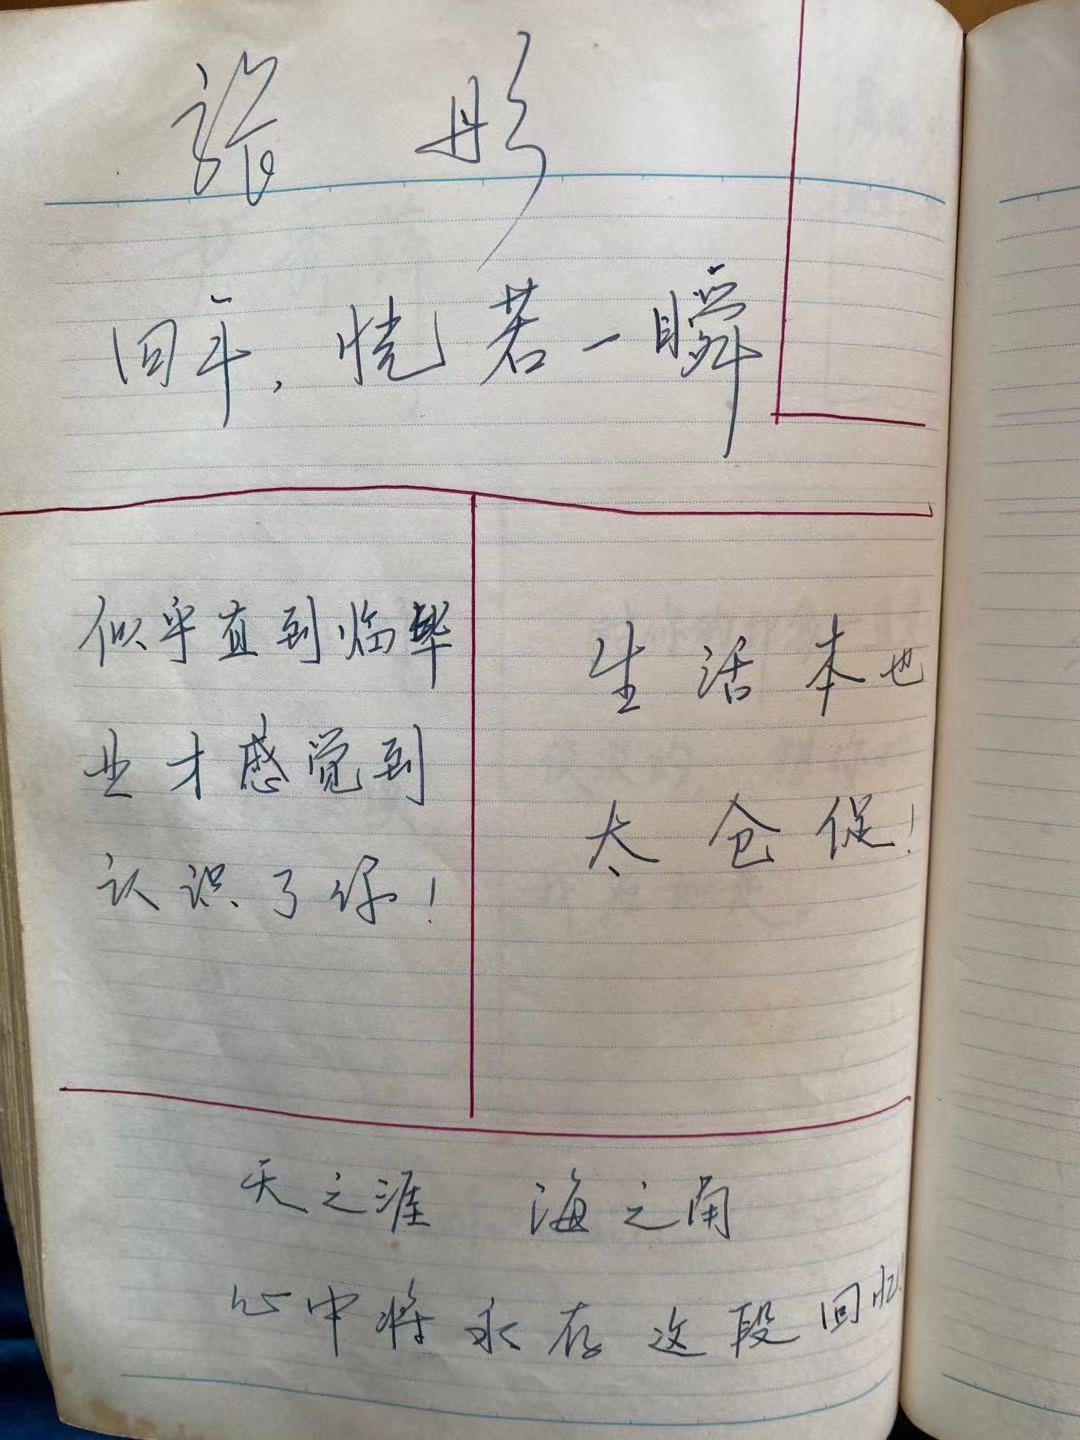 彤
四年，恍若一瞬
似乎直到临毕
业才感觉到
认识了你！
生活本也
太仓促！
天之涯 海之角
心中将永存这段回忆！